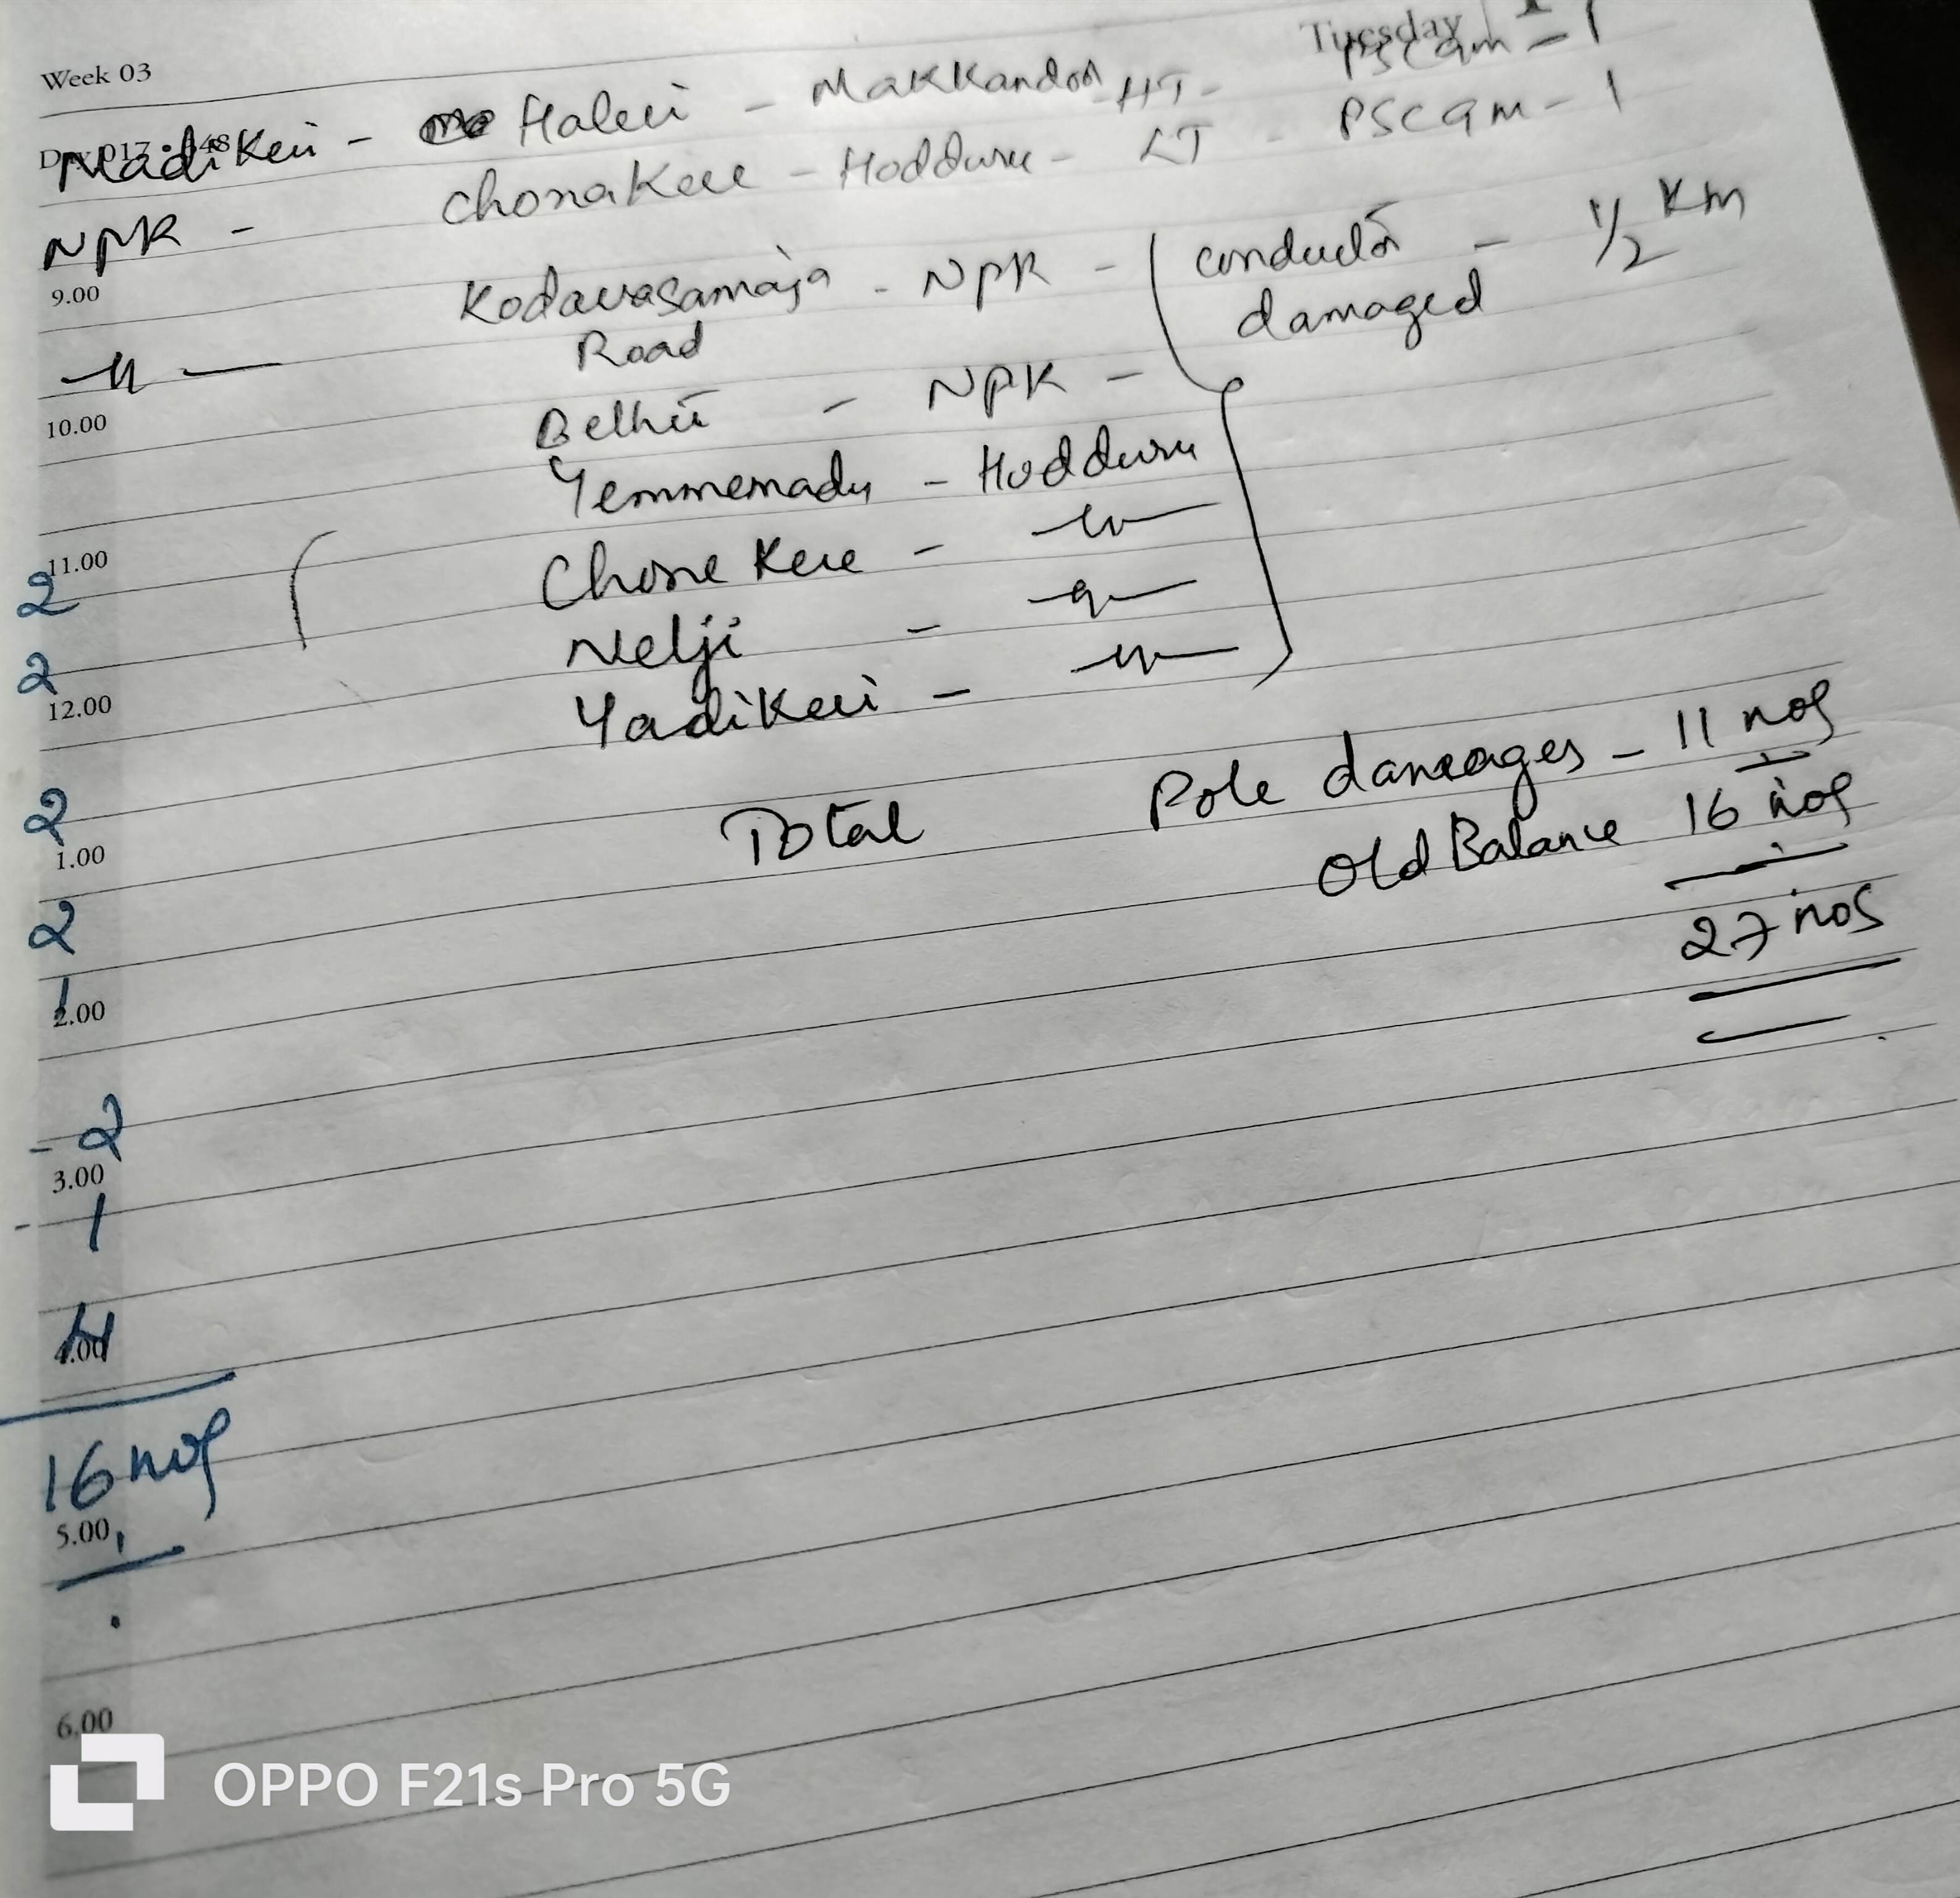 Week 03
Tuesday
PSC 9m - 1
Madikeri - Haleri - Makkandoor - HT -
NPK - Chonakere - Hodduru - LT - PSC 9m - 1
9.00
Kodavasamaja - NPK - ( conductor - 1/2 Km
Road damaged
-11-
10.00
Bethri - NPK -
Yemmemadu - Hodduru
11.00
2
Chonekere - -11-
Nelji - -11-
2
12.00
Yadikeri - -11-
Total Pole damages - 11 nos
2
1.00
Old Balance 16 nos
2
27 nos
1
2.00
- 2
3.00
- 1
4
4.00
16 nos
5.00
6.00
OPPO F21s Pro 5G